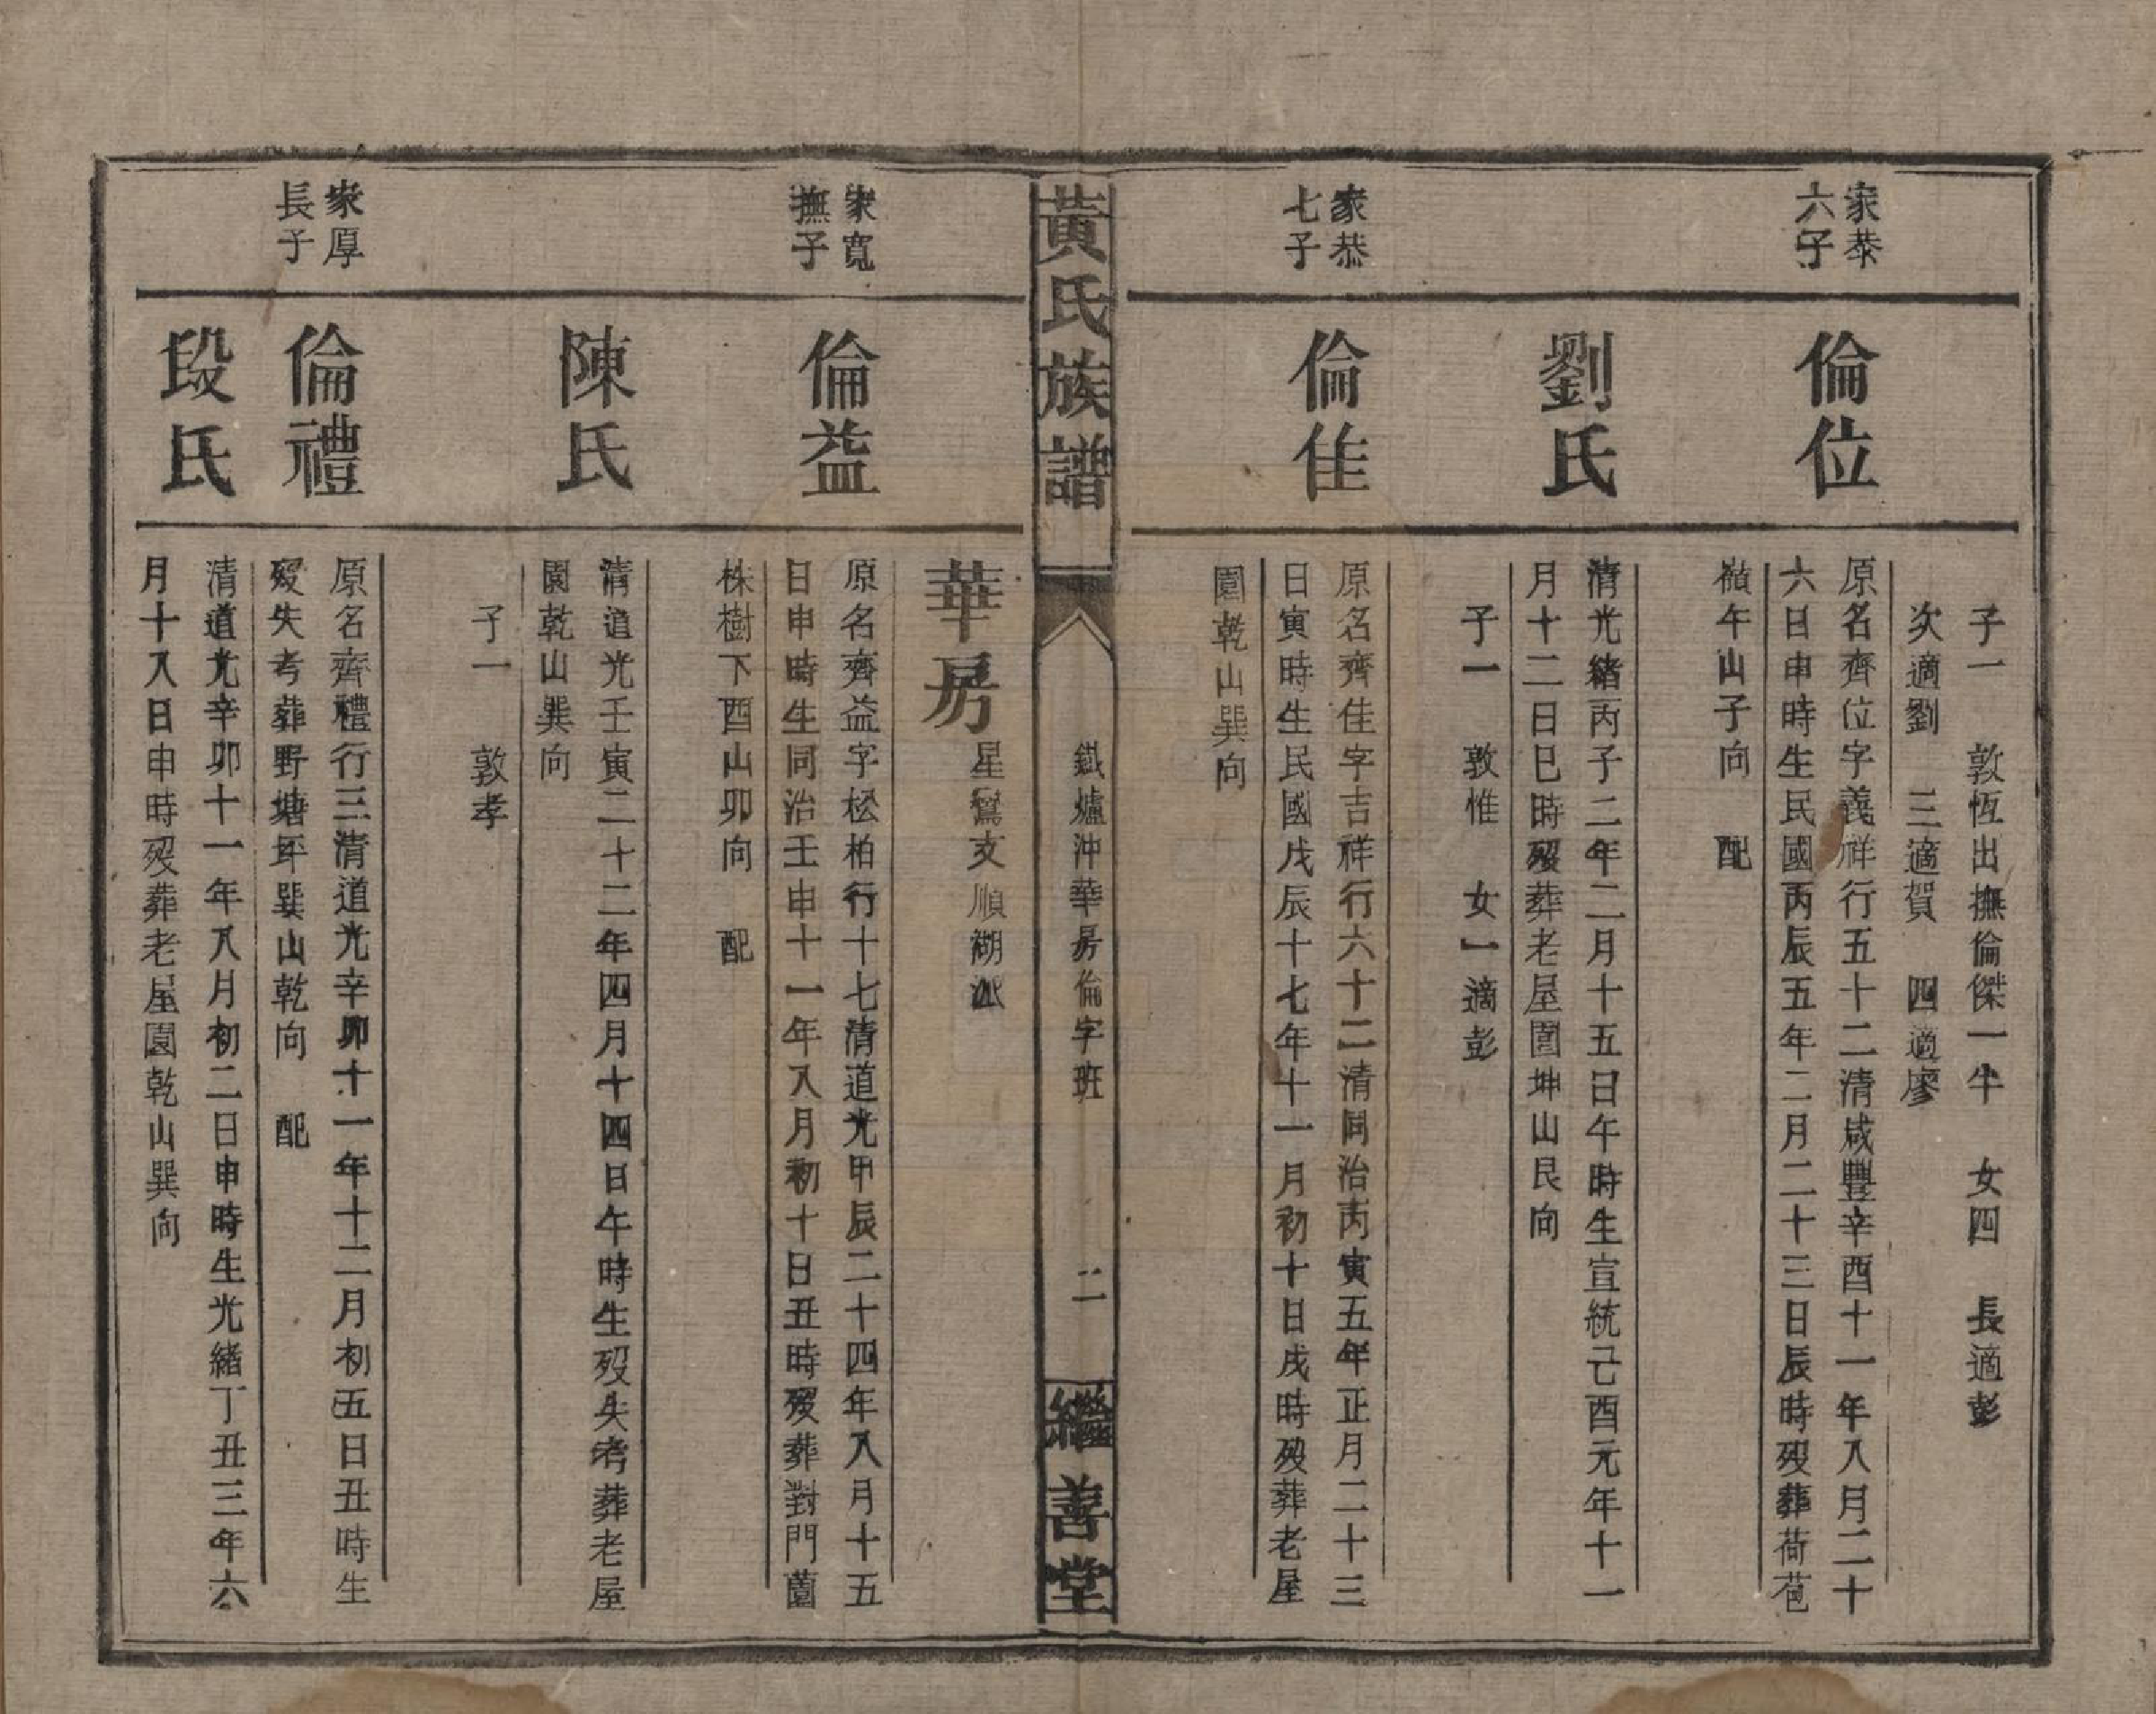 子一　敦恆出撫倫傑一牛　女四　長適彭
次適劉　三適賀　四適廖
家恭
六子
倫位
原名齊位字義祥行五十二清咸豐辛酉十一年八月二十
六日申時生民國丙辰五年二月二十三日辰時歿葬荷苞
嶺午山子向　配
劉氏
清光緒丙子二年二月十五日午時生宣統己酉元年十一
月十二日巳時歿葬老屋園坤山艮向
子一　敦惟　女一適彭
家恭
七子
倫佳
原名齊佳字吉祥行六十二清同治丙寅五年正月二十三
日寅時生民國戊辰十七年十一月初十日戌時歿葬老屋
園乾山巽向
黃氏族譜
鐵爐沖華房倫字班
二
繼善堂
華房
星鶩支順湖派
家寬
撫子
倫益
原名齊益字松柏行十七清道光甲辰二十四年八月十五
日申時生同治壬申十一年八月初十日丑時歿葬對門薗
株樹下酉山卯向　配
陳氏
清道光壬寅二十二年四月十四日午時生歿失考葬老屋
園乾山巽向
子一　敦孝
家厚
長子
倫禮
原名齊禮行三清道光辛卯十一年十二月初五日丑時生
歿失考葬野塘坪巽山乾向　配
段氏
清道光辛卯十一年八月初二日申時生光緒丁丑三年六
月十八日申時歿葬老屋園乾山巽向